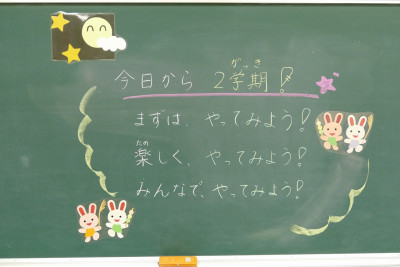 今日から 2学期!
まずは、やってみよう!
楽しく、やってみよう!
みんなで、やってみよう!